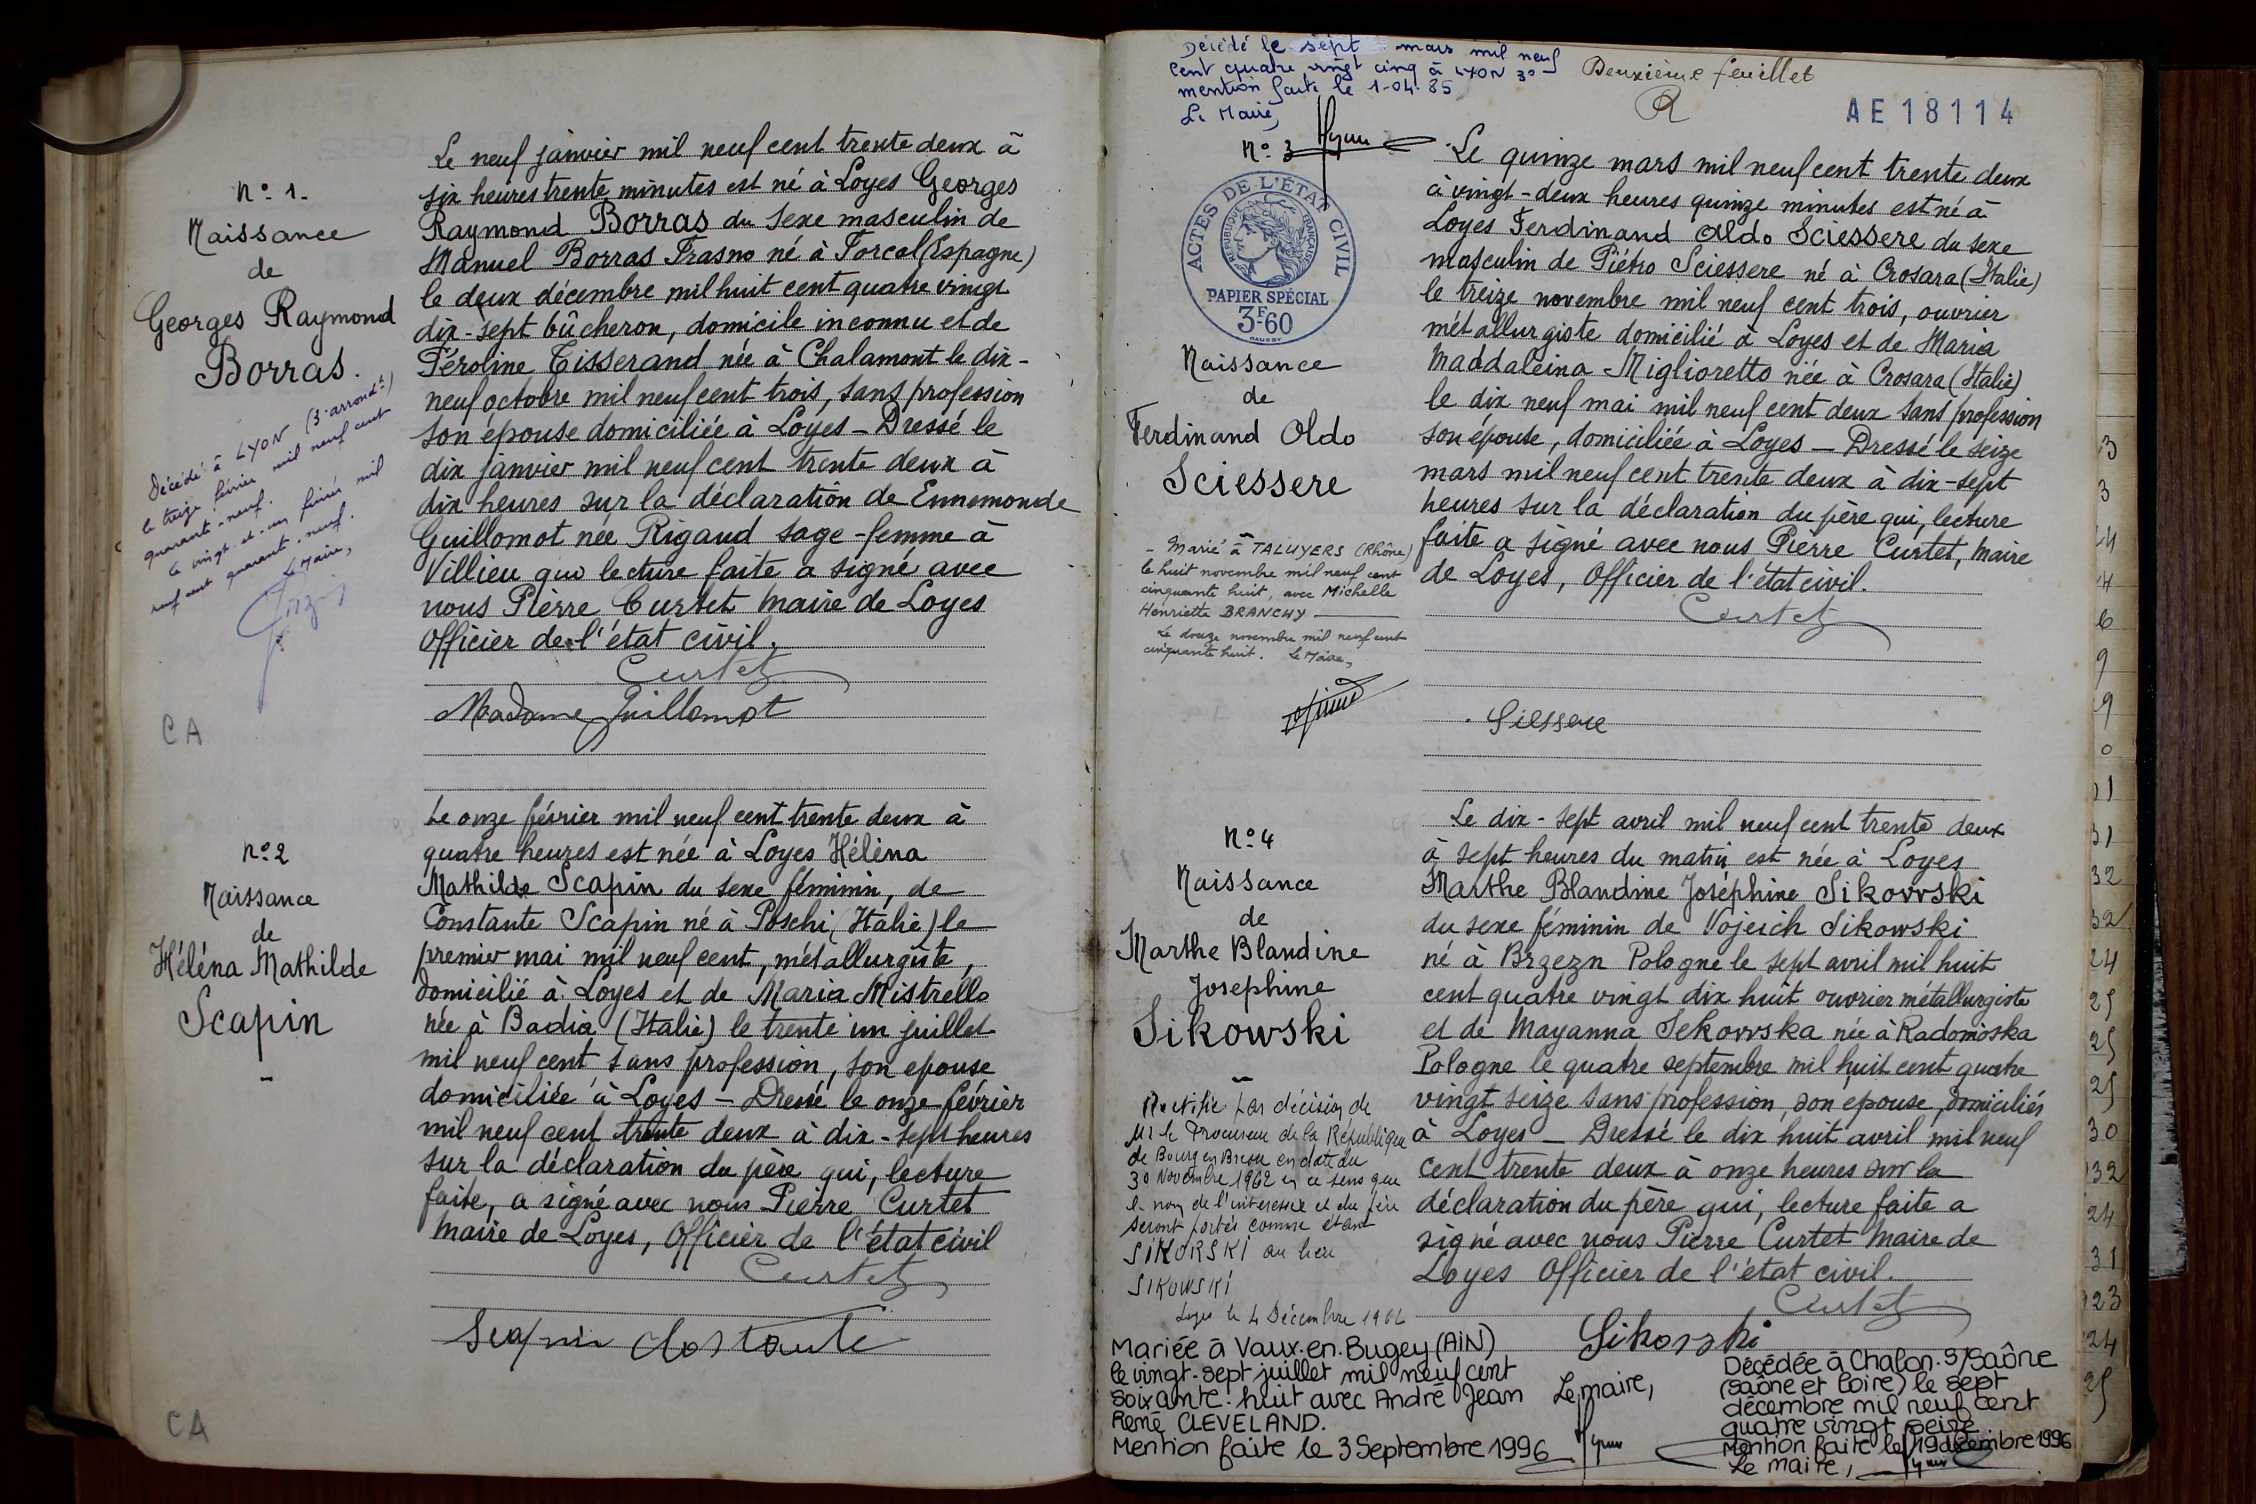 N° 1.
Naissance
de
Georges Raymond
Borras.
Décédé à LYON (3e arrondt)
le treize février mil neuf cent
quarante-neuf.
Le vingt-et-un février mil
neuf cent quarante-neuf.
Le Maire,
CA
Le neuf janvier mil neuf cent trente deux à
six heures trente minutes est né à Loyes Georges
Raymond Borras du sexe masculin de
Manuel Borras Frasno né à Forcal (Espagne)
le deux décembre mil huit cent quatre vingt
dix-sept bûcheron, domicile inconnu et de
Péroline Tisserand née à Chalamont le dix-
neuf octobre mil neuf cent trois, sans profession
son épouse domiciliée à Loyes – Dressé le
dix janvier mil neuf cent trente deux à
dix heures sur la déclaration de Ennemonde
Guillomot née Rigaud sage-femme à
Villieu qui lecture faite a signé avec
nous Pierre Curtet maire de Loyes
Officier de l'état civil.
Curtet
Madame Guillomot
n° 2
Naissance
de
Héléna Mathilde
Scapin
CA
Le onze février mil neuf cent trente deux à
quatre heures est née à Loyes Héléna
Mathilde Scapin du sexe féminin, de
Constante Scapin né à Poschi (Italie) le
premier mai mil neuf cent, métallurgiste,
domicilié à Loyes et de Maria Mistrello
née à Badia (Italie) le trente un juillet
mil neuf cent sans profession, son epouse
domiciliée à Loyes – Dressé le onze février
mil neuf cent trente deux à dix-sept heures
sur la déclaration du père qui, lecture
faite, a signé avec nous Pierre Curtet
maire de Loyes, Officier de l'état civil
Curtet
Scapin Costante
Décédé le sept mars mil neuf
cent quatre vingt cinq à LYON 3e
mention faite le 1-04-85
Le Maire,
Deuxième feuillet
R
AE 18114
N° 3
ACTES DE L'ÉTAT CIVIL
RÉPUBLIQUE FRANÇAISE
PAPIER SPÉCIAL
3F60
Naissance
de
Ferdinand Oldo
Sciessere
– Marié à TALUYERS (Rhône)
le huit novembre mil neuf cent
cinquante huit, avec Michelle
Henriette BRANCHY
Le douze novembre mil neuf cent
cinquante huit. Le Maire,
Le quinze mars mil neuf cent trente deux
à vingt-deux heures quinze minutes est né à
Loyes Ferdinand Aldo Sciessere du sexe
masculin de Piétro Sciessere né à Crosara (Italie)
le treize novembre mil neuf cent trois, ouvrier
métallurgiste domicilié à Loyes et de Maria
Maddaleina Miglioretto née à Crosara (Italie)
le dix neuf mai mil neuf cent deux sans profession
son épouse, domiciliée à Loyes – Dressé le seize
mars mil neuf cent trente deux à dix-sept
heures sur la déclaration du père qui, lecture
faite a signé avec nous Pierre Curtet, maire
de Loyes, Officier de l'état civil.
Curtet
Siessere
N° 4
Naissance
de
Marthe Blandine
Josephine
Sikowski
Rectifié par décision de
Mr le Procureur de la République
de Bourg en Bresse en date du
30 Novembre 1962 en ce sens que
le nom de l'interessée et du père
seront portés comme étant
SIKORSKI au lieu
SIKOWSKI
Loyes le 4 Décembre 1962
Le dix-sept avril mil neuf cent trente deux
à sept heures du matin est née à Loyes
Marthe Blandine Joséphine Sikowski
du sexe féminin de Vojeich Sikowski
né à Brzezn Pologne le sept avril mil huit
cent quatre vingt dix huit ouvrier métallurgiste
et de Mayanna Sekowska née à Radomoska
Pologne le quatre septembre mil huit cent quatre
vingt seize sans profession, son epouse, domiciliés
à Loyes – Dressé le dix huit avril mil neuf
cent trente deux à onze heures sur la
déclaration du père qui, lecture faite a
signé avec nous Pierre Curtet maire de
Loyes Officier de l'état civil.
Curtet
Sikorski
Mariée à Vaux-en-Bugey (AIN)
le vingt-sept juillet mil neuf cent
soixante-huit avec André Jean
René CLEVELAND.
Mention faite le 3 Septembre 1996
Le maire,
Décédée à Chalon-S/Saône
(Saône et Loire) le sept
décembre mil neuf cent
quatre vingt seize
Mention faite le 19 décembre 1996
Le maire,